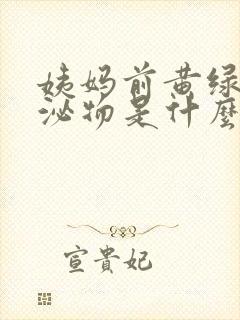 姨妈前黄绿
泌物是什麽
宣貴妃